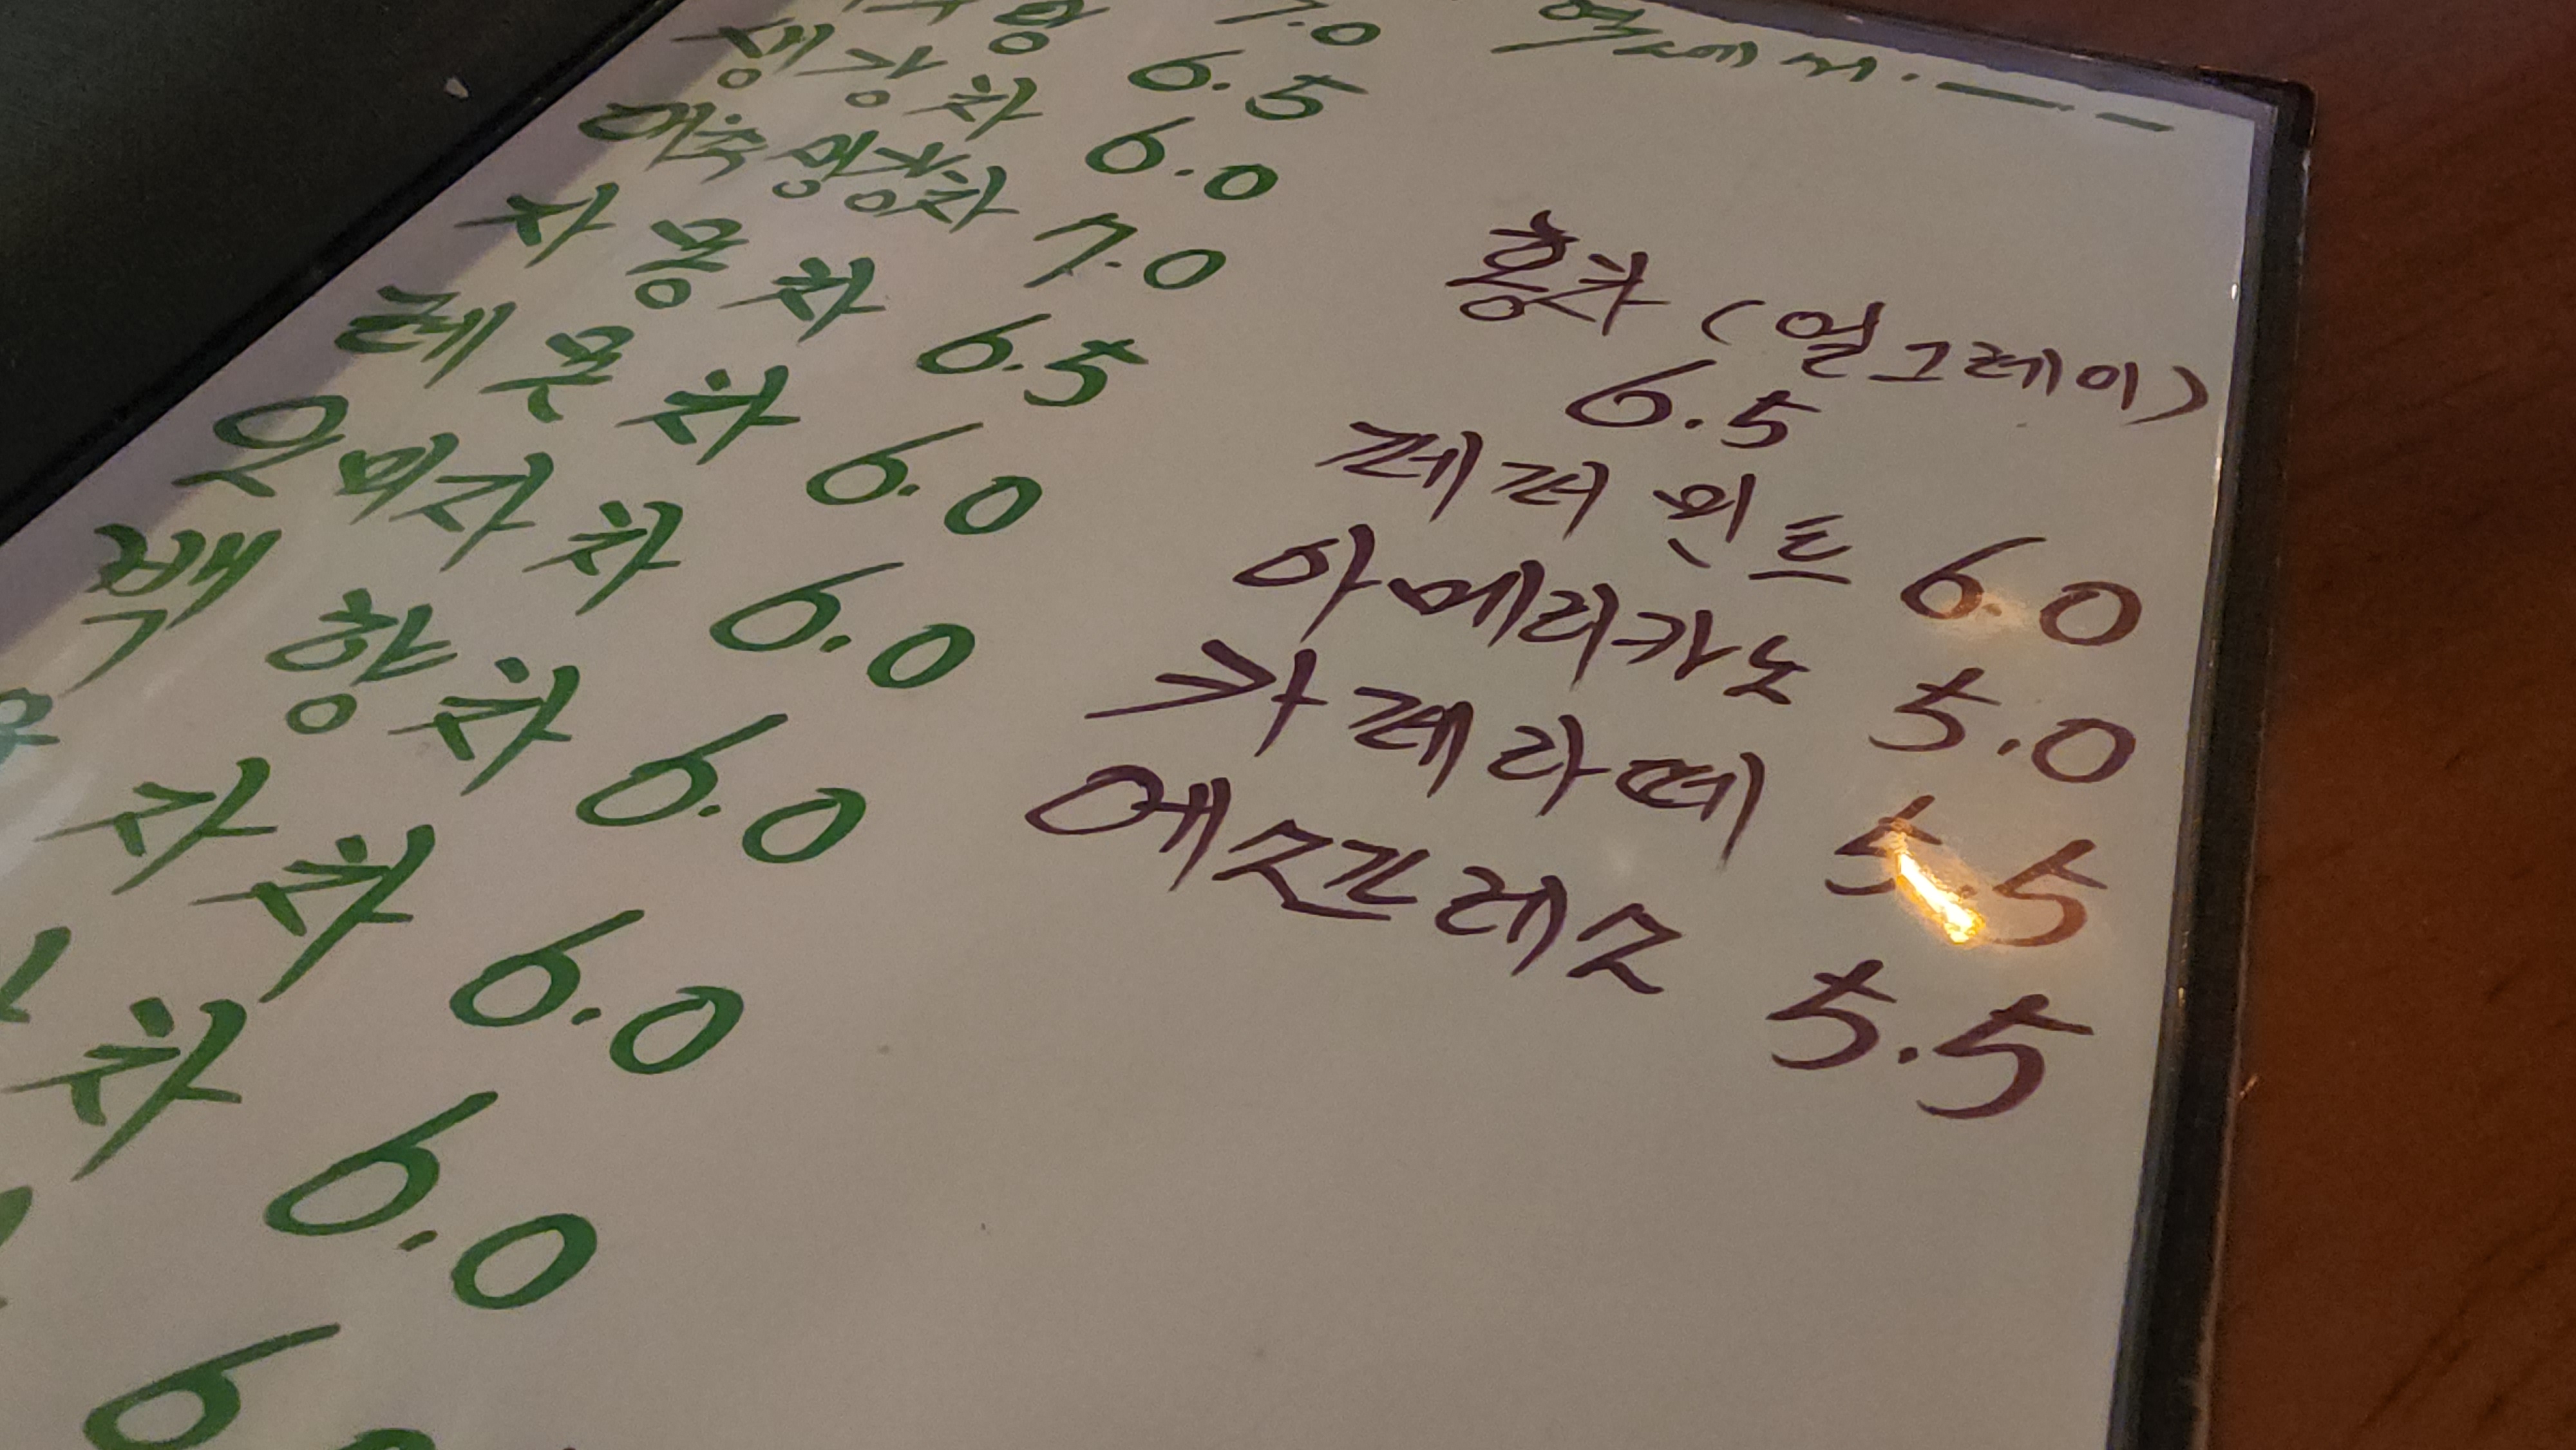 7.0
6.5
생강차 6.0
대추생강차 7.0
자몽차 6.5
레몬차 6.0
오미자차 6.0
백향차 6.0
유자차 6.0
차 6.0
홍차 (얼그레이)
6.5
페퍼민트 6.0
아메리카노 5.0
카페라떼 5.5
에스프레스 5.5